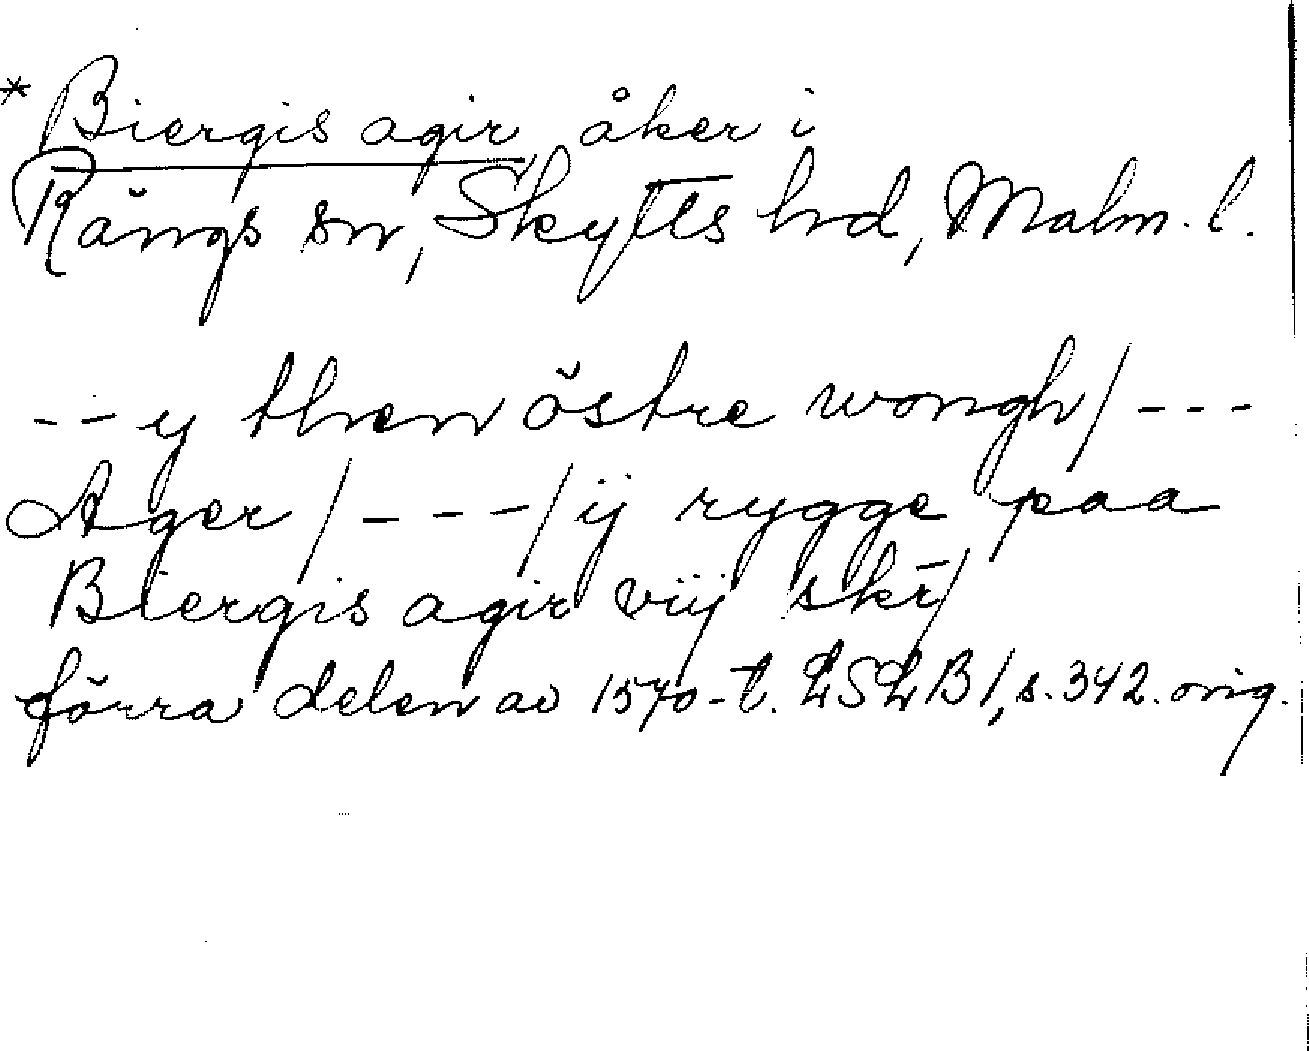 * Biergis agir, åker i
Rängs sn, Skytts hd, Malm. l.
-- y then östre wongh/ ---
Ager / --- / ij rygge paa
Biergis agir viij skr/
förra delen av 1570-t. LSLB 1, s. 342. orig.